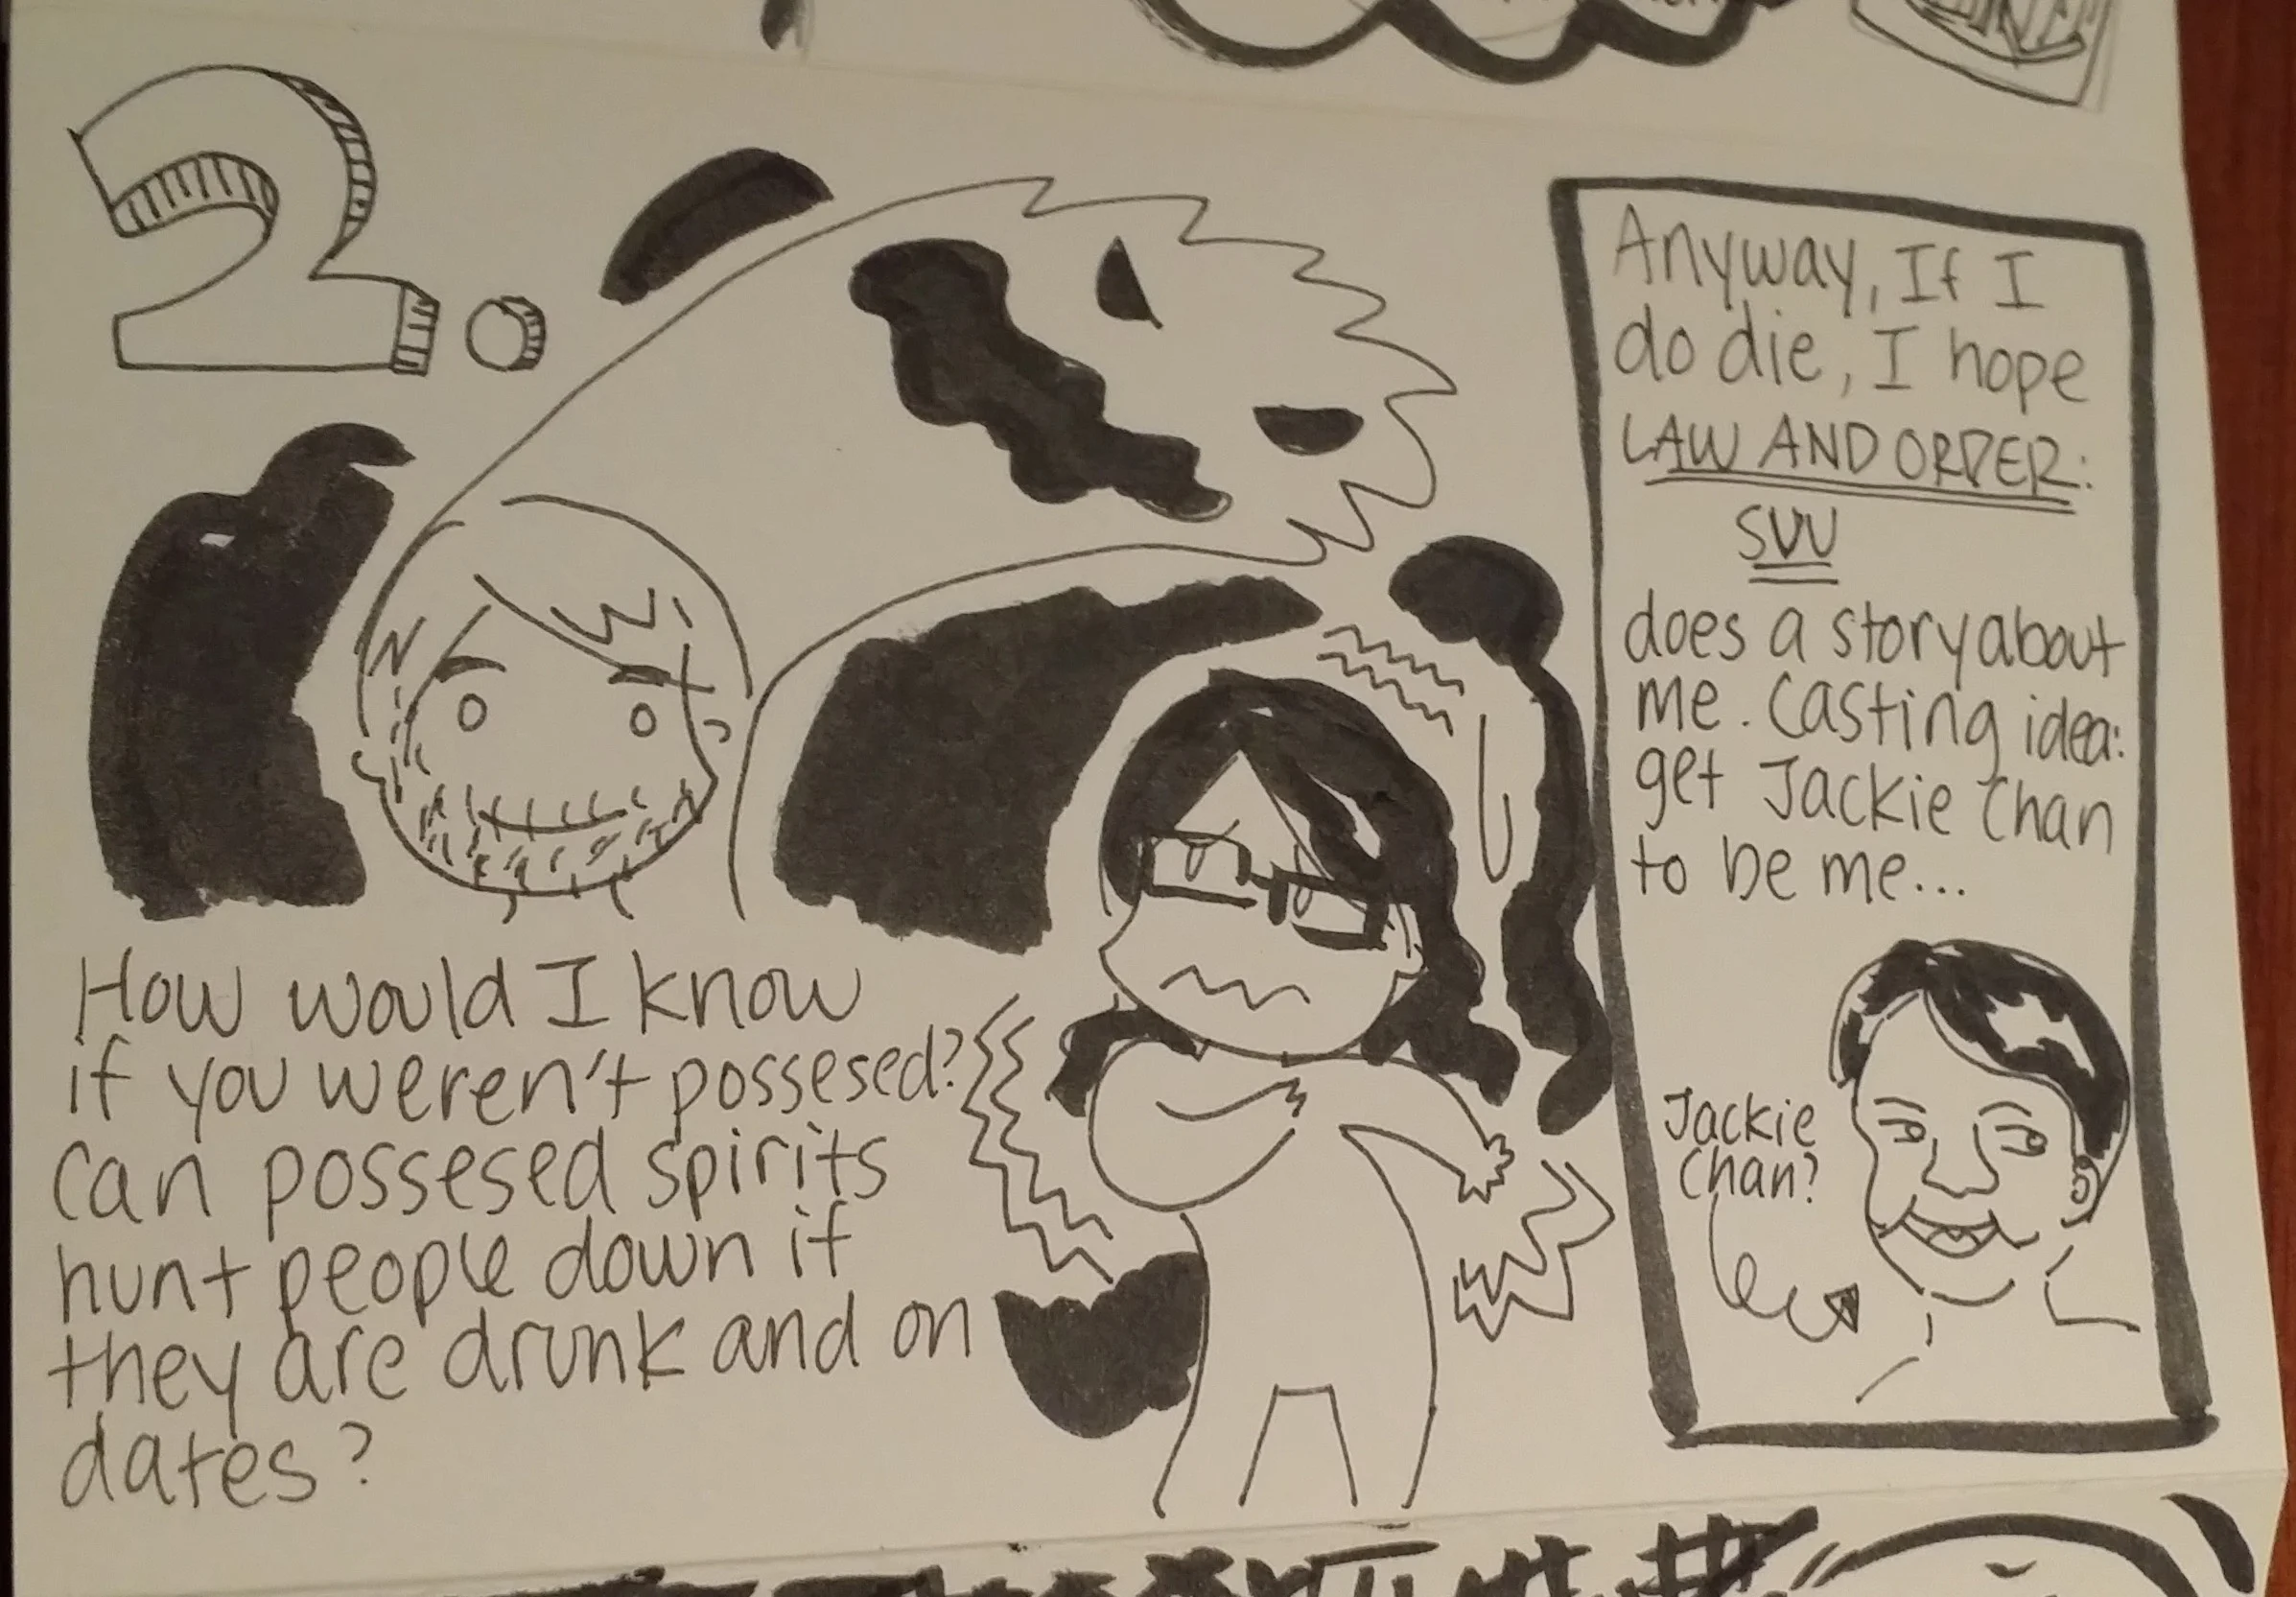 2.
How would I know
if you weren't possesed?
Can possesed spirits
hunt people down if
they are drunk and on
dates?
Anyway, If I
do die, I hope
LAW AND ORDER:
SVU
does a story about
me. Casting idea:
get Jackie Chan
to be me...
Jackie
Chan?